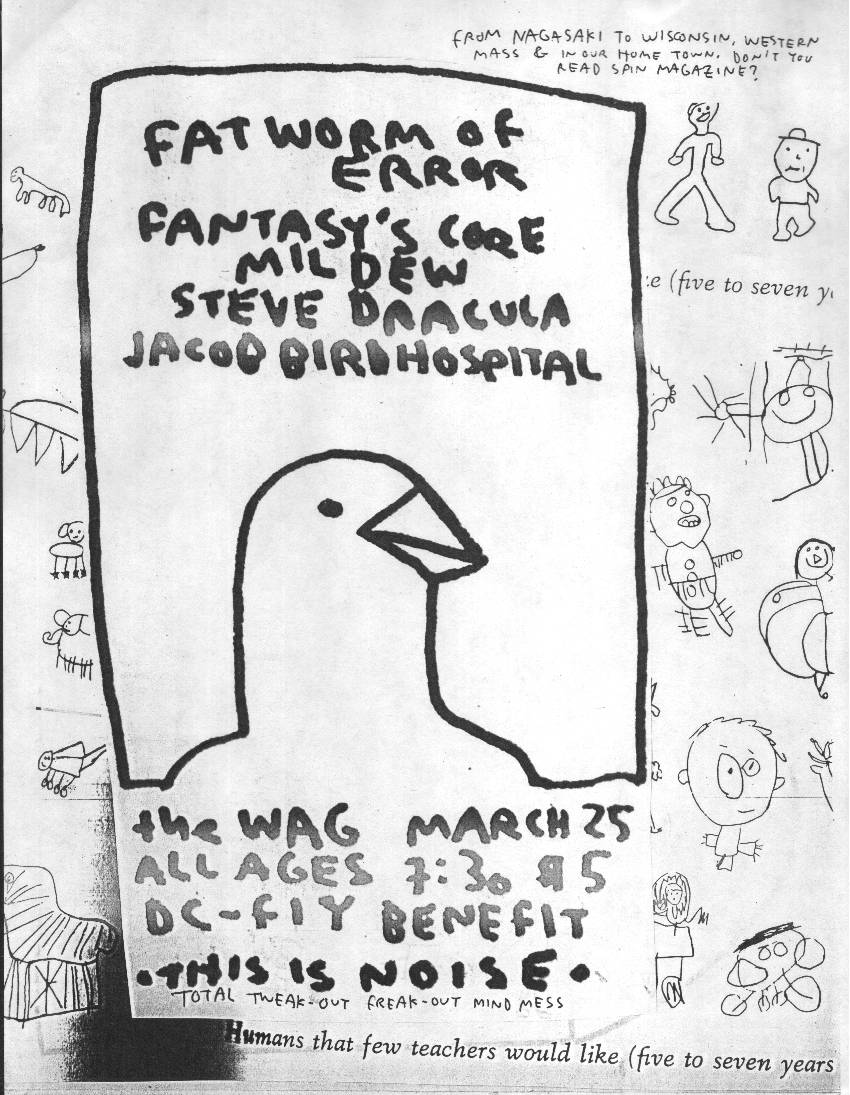 FROM NAGASAKI TO WISCONSIN, WESTERN
MASS & IN OUR HOME TOWN. DON'T YOU
READ SPIN MAGAZINE?
FAT WORM OF
ERROR
FANTASY'S CORE
MILDEW
STEVE DAACULA
JACOB BIRDHOSPITAL
(five to seven
the WAG MARCH 25
ALL AGES 7:30 $5
DC-FIY BENEFIT
•THIS IS NOISE•
TOTAL TWEAK-OUT FREAK-OUT MIND MESS
Humans that few teachers would like (five to seven years